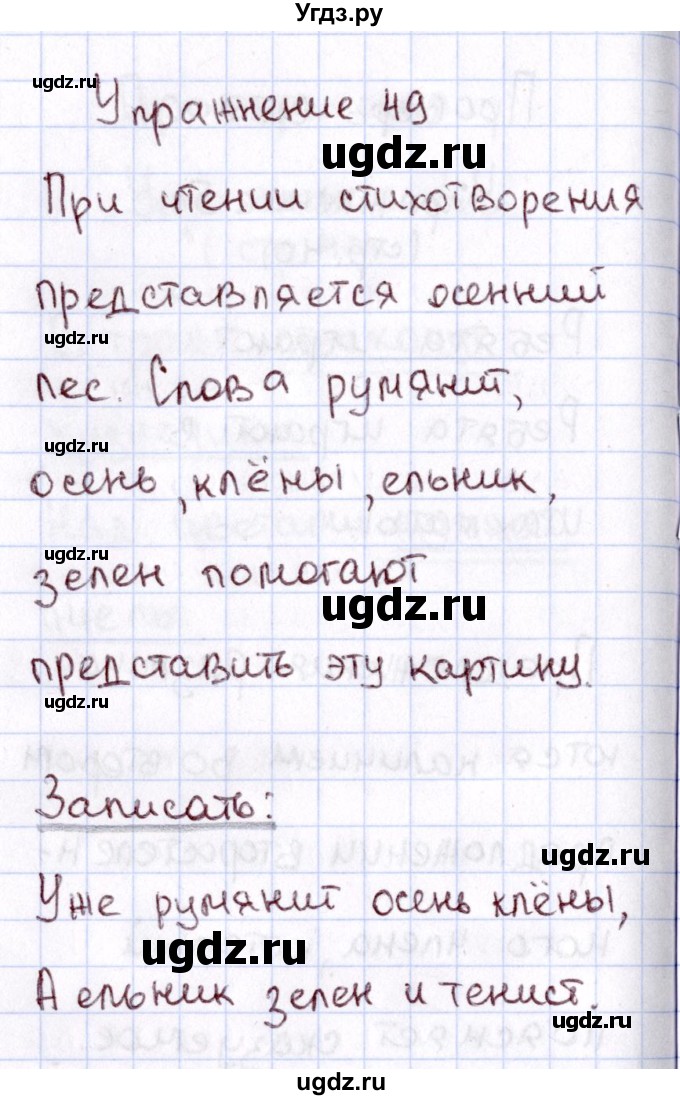 Угдз.ру
ugdz.ru
Упражнение 49
ugdz.ru
При чтении стихотворения
представляется осенний
ugdz.ru
лес. Слова румянит,
ugdz.ru
осень, клёны, ельник,
ugdz.ru
зелен помогают
ugdz.ru
представить эту картину.
ugdz.ru
Записать:
ugdz.ru
Уже румянит осень клёны,
ugdz.ru
А ельник зелен и тенист.
ugdz.ru
ugdz.ru